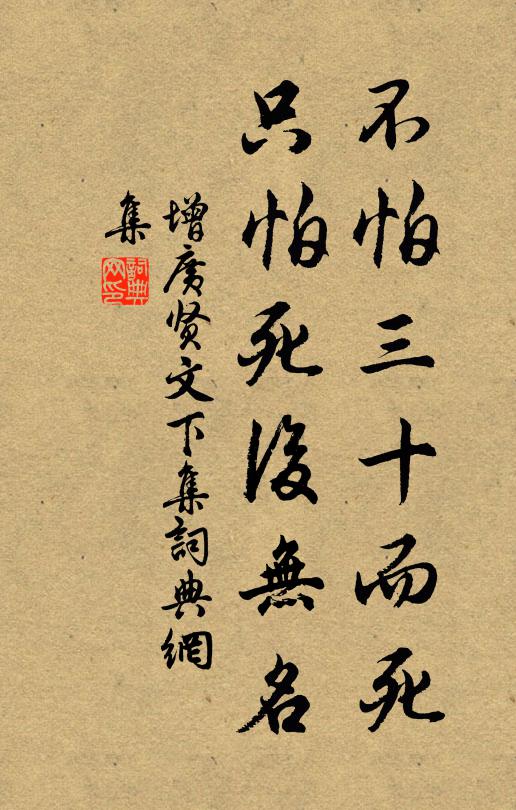 不怕三十而死
只怕死後無名
增廣贤文下集詞典網
集
詞典
网印